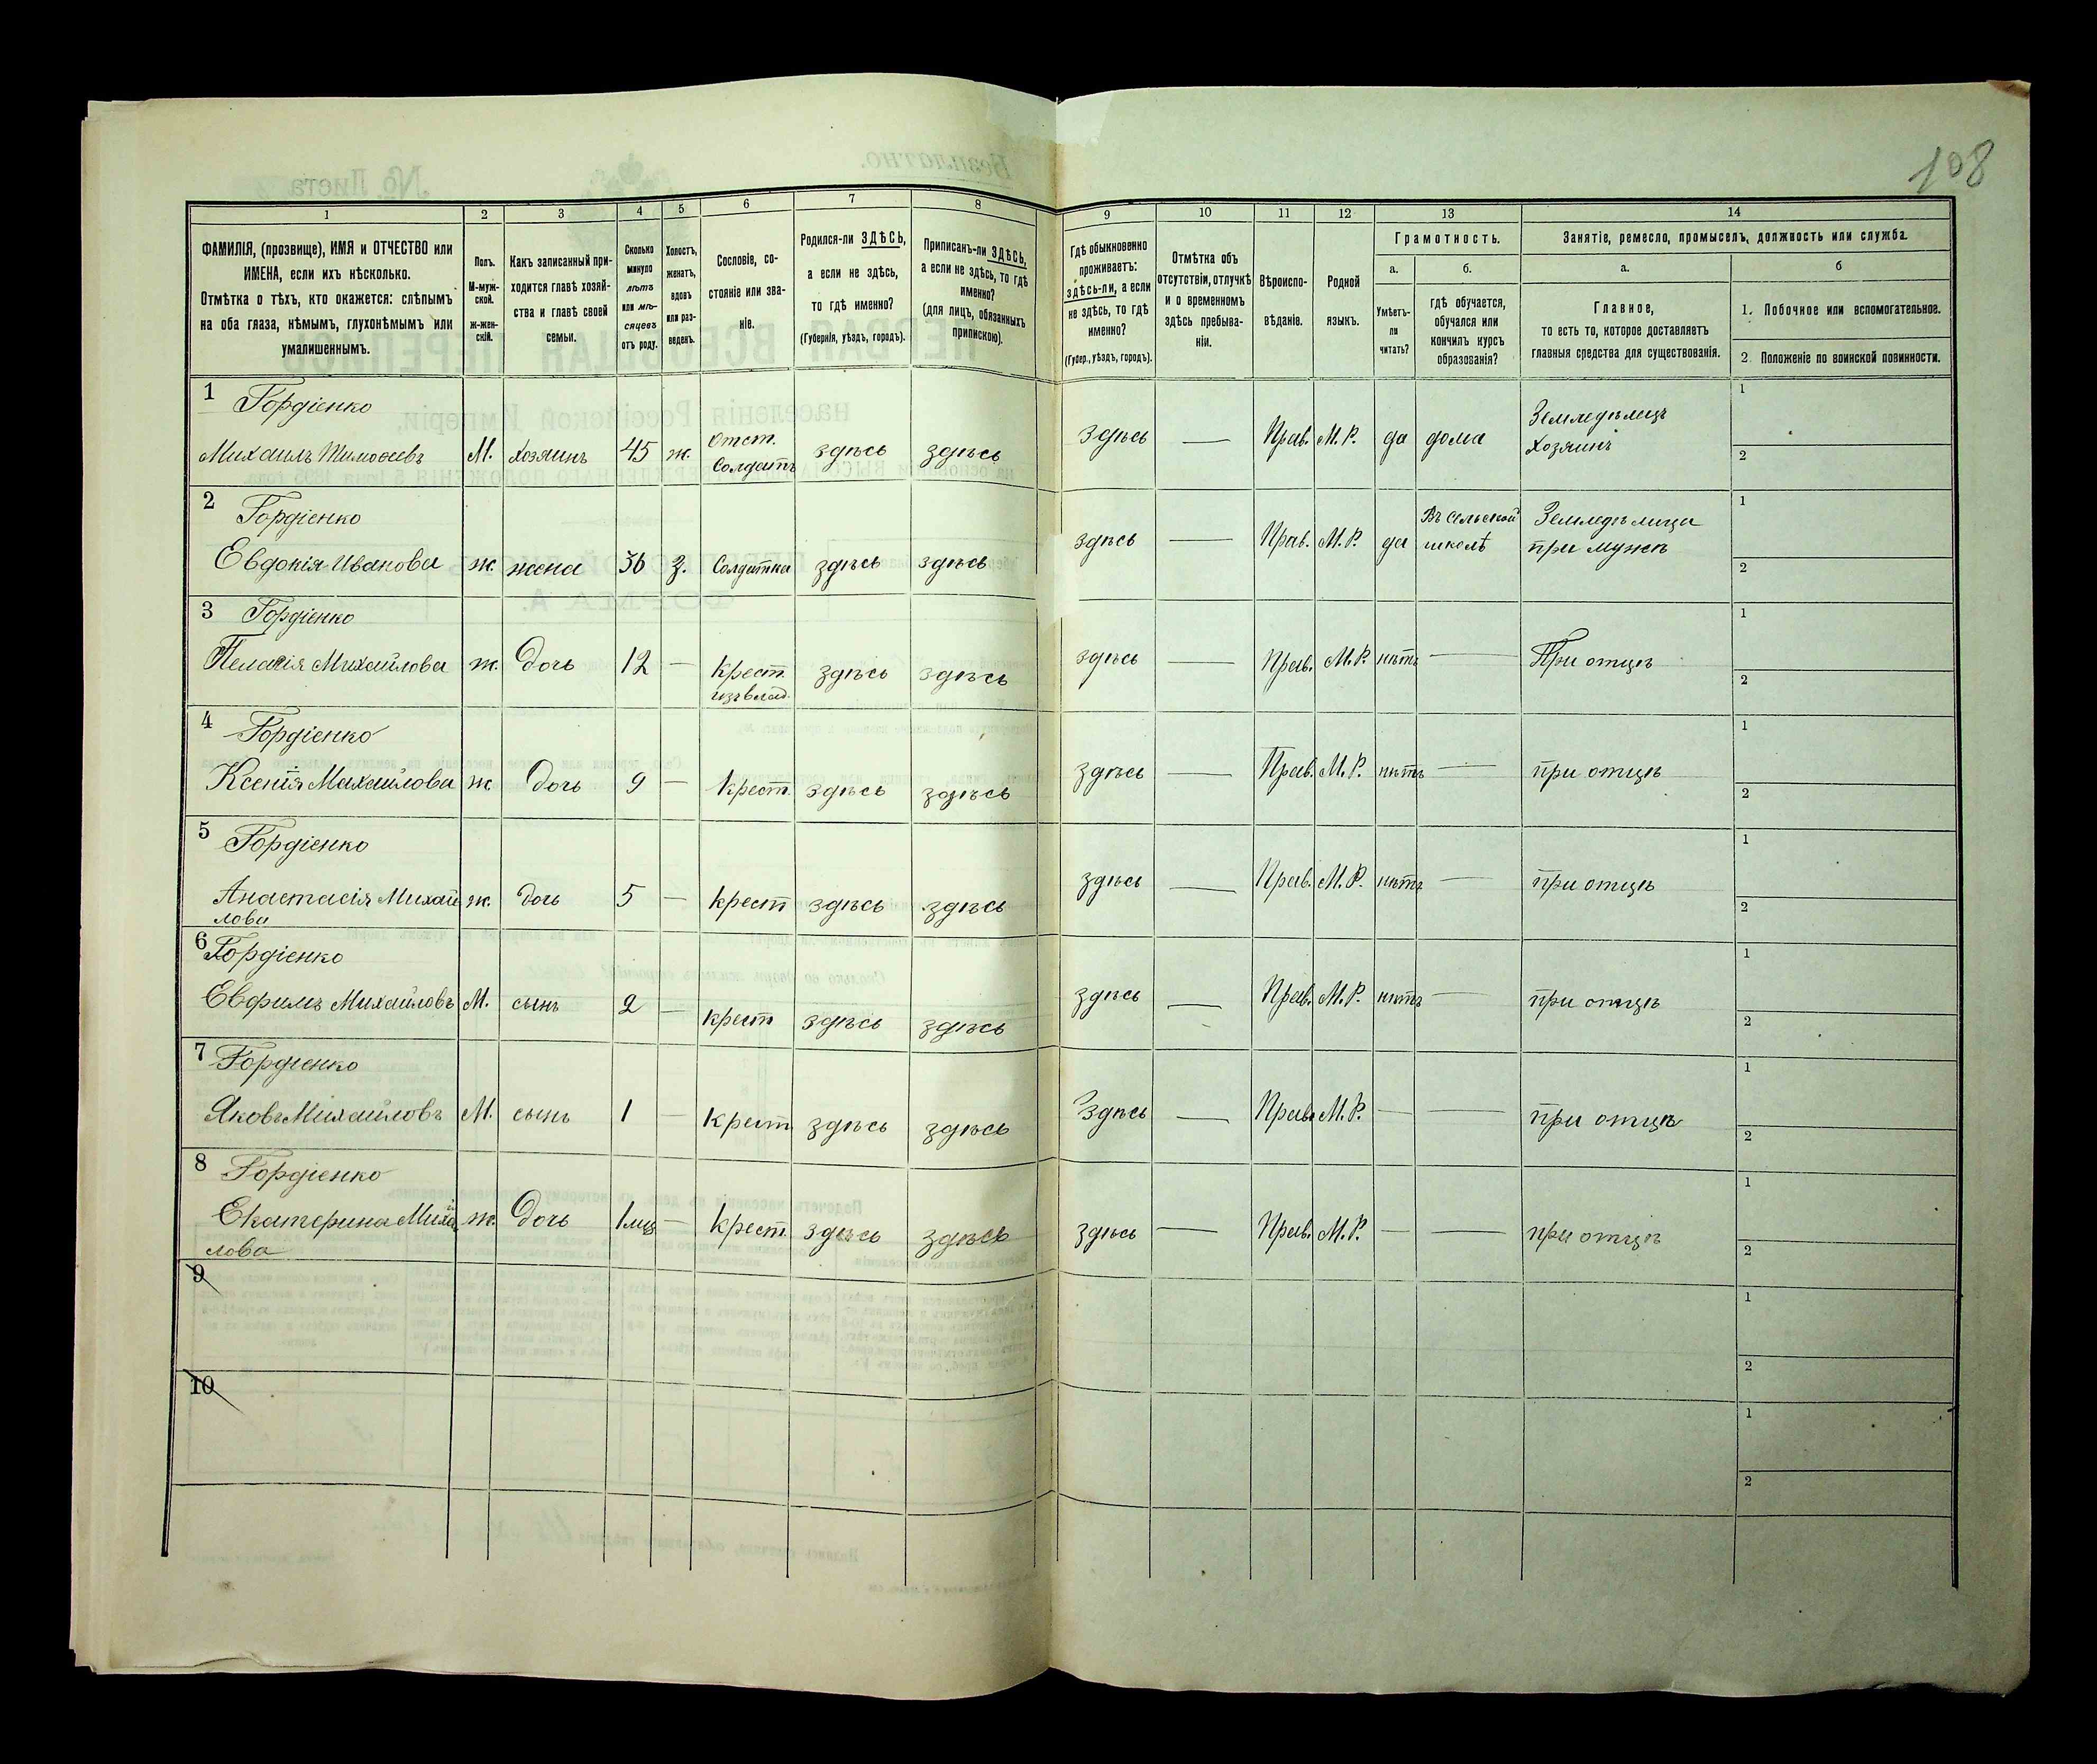 108
1 2 3 4 5 6 7 8 9 10 11 12 13 14
ФАМИЛІЯ, (прозвище), ИМЯ и ОТЧЕСТВО или
ИМЕНА, если ихъ нѣсколько.
Отмѣтка о тѣхъ, кто окажется: слѣпымъ
на оба глаза, нѣмымъ, глухонѣмымъ или
умалишеннымъ.
Полъ.
М-муж-
ской.
ж-жен-
скій.
Какъ записанный при-
ходится главѣ хозяй-
ства и главѣ своей
семьи.
Сколько
минуло
лѣтъ
или мѣ-
сяцевъ
отъ роду.
Холостъ,
женатъ,
вдовъ
или раз-
веденъ.
Сословіе, со-
стояніе или зва-
ніе.
Родился-ли ЗДѢСЬ,
а если не здѣсь,
то гдѣ именно?
(Губернія, уѣздъ, городъ).
Приписанъ-ли ЗДѢСЬ,
а если не здѣсь, то гдѣ
именно?
(для лицъ, обязанныхъ
припискою).
Гдѣ обыкновенно
проживаетъ:
здѣсь-ли, а если
не здѣсь, то гдѣ
именно?
(Губер., уѣздъ, городъ).
Отмѣтка объ
отсутствіи, отлучкѣ
и о временномъ
здѣсь пребыва-
ніи.
Вѣроиспо-
вѣданіе.
Родной
языкъ.
Грамотность.
а.
Умѣетъ-
ли
читать?
б.
гдѣ обучается,
обучался или
кончилъ курсъ
образованія?
Занятіе, ремесло, промыселъ, должность или служба.
а.
Главное,
то есть то, которое доставляетъ
главныя средства для существованія.
б
1. Побочное или вспомогательное.
2. Положеніе по воинской повинности.
1 Гордіенко
Михаилъ Тимофеевъ М. хозяинъ 45 ж. Отст. Солдатъ здѣсь здѣсь здѣсь — Прав. М. Р. да дома Земледѣлецъ Хозяинъ 1 2
2 Гордіенко
Евдокія Иванова ж. жена 36 з. Солдатка здѣсь здѣсь здѣсь — Прав. М. Р. да Въ сельской школѣ Земледѣлица при мужѣ 1 2
3 Гордіенко
Пелагія Михайлова ж. дочь 12 — Крест. изъ влад. здѣсь здѣсь здѣсь — Прав. М. Р. нѣтъ — При отцѣ 1 2
4 Гордіенко
Ксенія Михайлова ж дочь 9 — Крест. здѣсь здѣсь здѣсь — Прав. М. Р. нѣтъ — при отцѣ 1 2
5 Гордіенко
Анастасія Михай
лова ж. дочь 5 — крест здѣсь здѣсь здѣсь — Прав. М. Р. нѣтъ — при отцѣ 1 2
6 Гордіенко
Евфимъ Михайловъ М. сынъ 2 — крест здѣсь здѣсь здѣсь — Прав. М. Р. нѣтъ — при отцѣ 1 2
7 Гордіенко
Яковъ Михайловъ М. сынъ 1 — крест здѣсь здѣсь здѣсь — Прав. М. Р. — — при отцѣ 1 2
8 Гордіенко
Екатерина Михай
лова ж. дочь 1 мцъ — крест. здѣсь здѣсь здѣсь — Прав. М. Р. — — при отцѣ 1 2
9 1 2
10 1 2